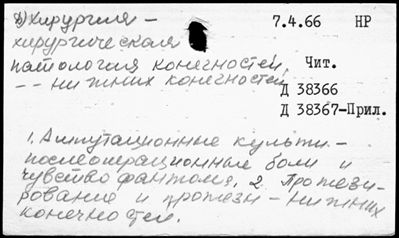 8) Хирургия – 7.4.66 НР
хирургическая
патология конечностей, Чит.
-- нижних конечностей
Д 38366
Д 38367-Прил.
1. Ампутационные культи –
послеоперационные боли и
чувство фантома. 2. Протези-
рование и протезы – нижних
конечностей.